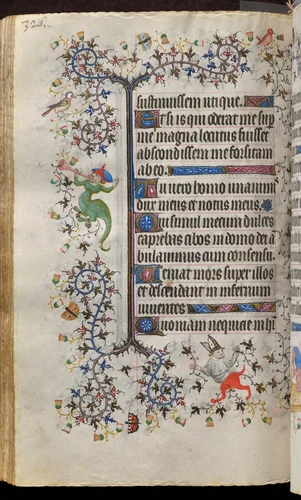 323.
sustinuissem utique.
Et si is qui oderat me sup
me magna locutus fuisset
abscondissem me forsitam
ab eo.
Tu vero homo unanimis
dux meus et notus meus.
Qui simul mecum dulces
capiebas cibos in domo dei a
bulavimus cum consensu.
Veniat mors super illos
et descendant in infernum
viventes.
Quoniam nequitie in h